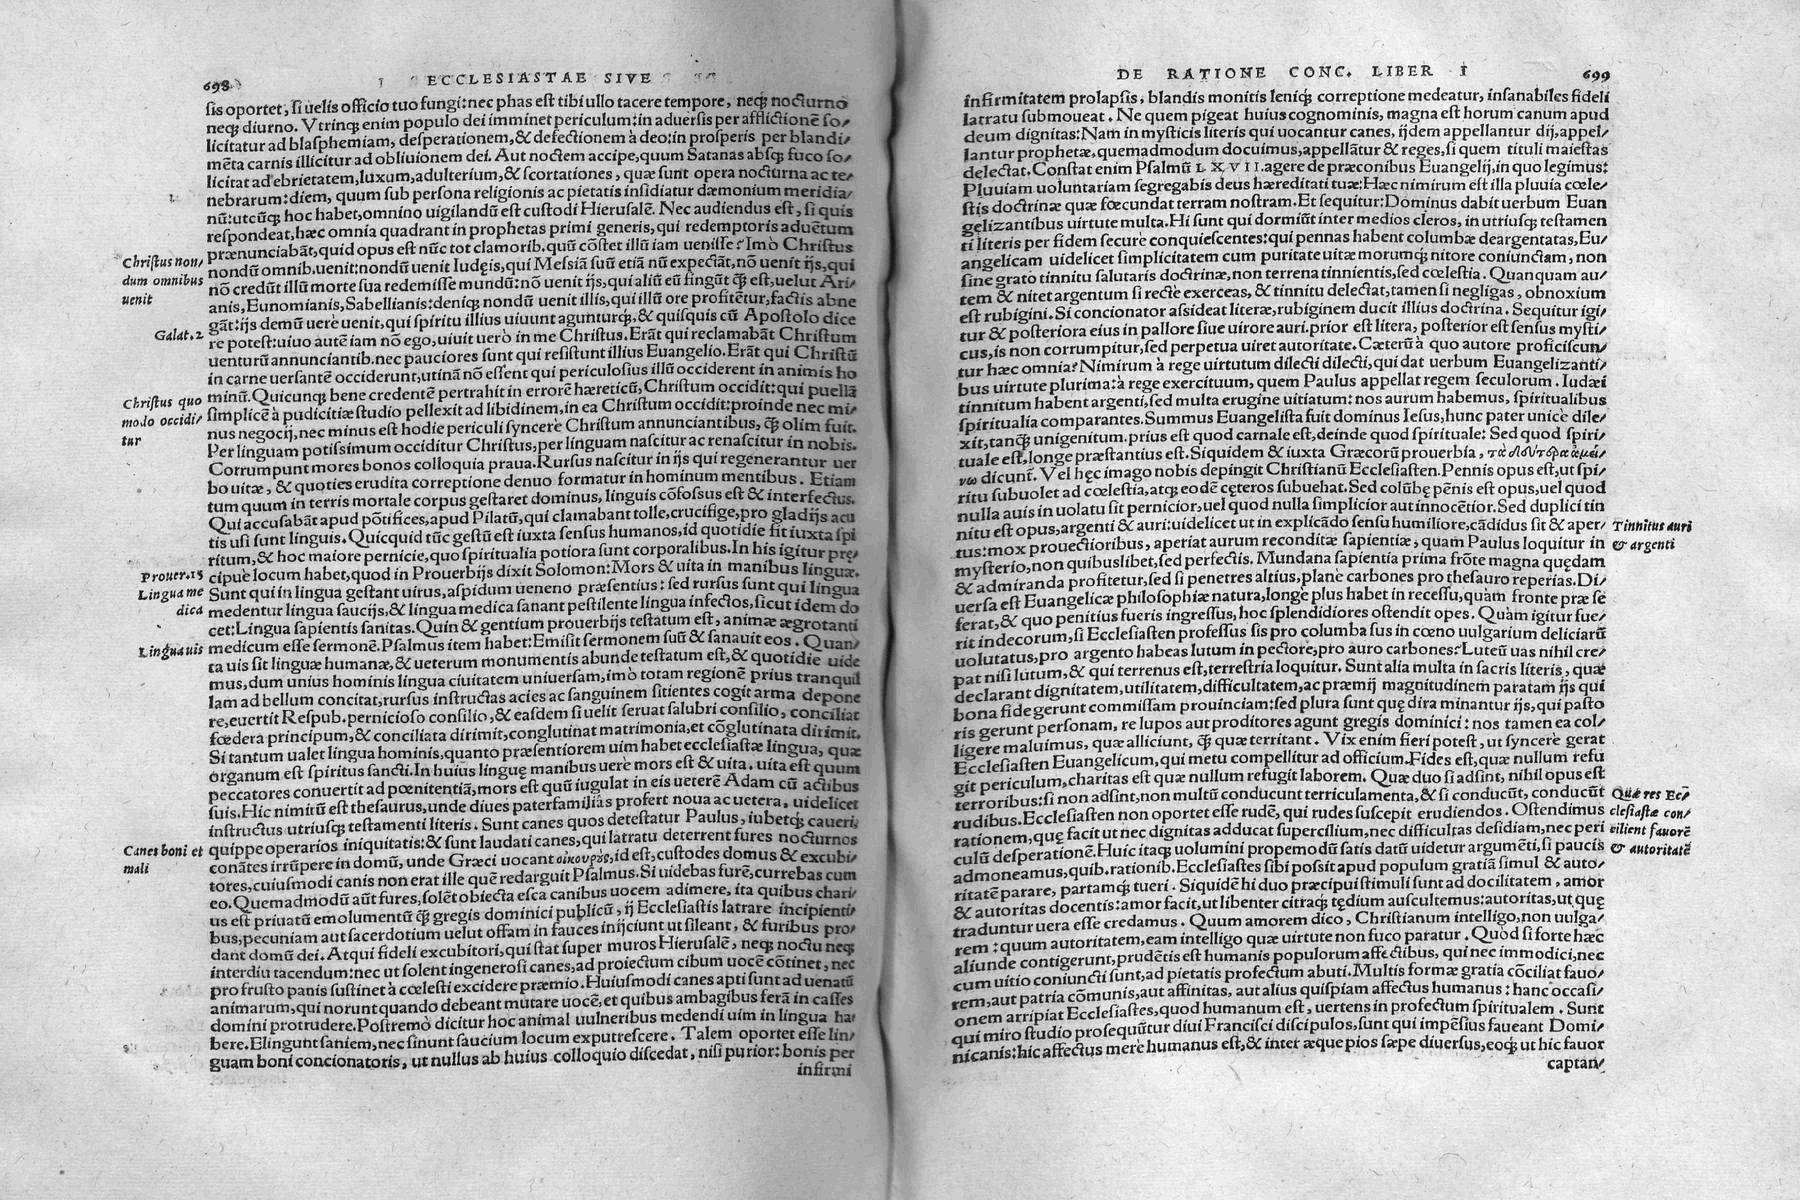 698 ECCLESIASTAE SIVE
sis oportet, si uelis officio tuo fungi: nec phas est tibi ullo tacere tempore, neq; nocturno
neq; diurno. Vtrinq; enim populo dei imminet periculum: in aduersis per afflictionē so/
licitatur ad blasphemiam, desperationem, & defectionem à deo: in prosperis per blandi/
mēta carnis illicitur ad obliuionem dei. Aut noctem accipe, quum Satanas absq; fuco so/
licitat ad ebrietatem, luxum, adulterium, & scortationes, quæ sunt opera nocturna ac te/
nebrarum: diem, quum sub persona religionis ac pietatis insidiatur dæmonium meridia/
nū: utcūq; hoc habet, omnino uigilandū est custodi Hierusalē. Nec audiendus est, si quis
respondeat, hæc omnia quadrant in prophetas primi generis, qui redemptoris aduētum
prænunciabāt, quid opus est nūc tot clamorib. quū cōstet illū iam uenisse? Imò Christus
nondū omnib. uenit: nondū uenit Iudęis, qui Messiā suū etiā nū expectāt, nō uenit ijs, qui
nō credūt illū morte sua redemisse mundū: nō uenit ijs, qui aliū eū fingūt q̃ est, uelut Ari/
anis, Eunomianis, Sabellianis: deniq; nondū uenit illis, qui illū ore profitētur, factis abne
gāt: ijs demū uerè uenit, qui spiritu illius uiuunt aguntur q;, & quisquis cū Apostolo dice
re potest: uiuo autē iam nō ego, uiuit uerò in me Christus. Erāt qui reclamabāt Christum
uenturū annunciantib. nec pauciores sunt qui resistunt illius Euangelio. Erāt qui Christū
in carne uersantē occiderunt, utinā nō essent qui periculosius illū occiderent in animis ho
minū. Quicunq; bene credentē pertrahit in errorē hæreticū, Christum occidit: qui puellā
simplicē à pudicitiæ studio pellexit ad libidinem, in ea Christum occidit: proinde nec mi/
nus negocij, nec minus est hodie periculi syncere Christum annunciantibus, q̃ olim fuit.
Per linguam potissimum occiditur Christus, per linguam nascitur ac renascitur in nobis.
Corrumpunt mores bonos colloquia praua. Rursus nascitur in ijs qui regenerantur uer
bo uitæ, & quoties erudita correptione denuo formatur in hominum mentibus. Etiam
tum quum in terris mortale corpus gestaret dominus, linguis cōfossus est & interfectus.
Qui accusabāt apud pōtifices, apud Pilatū, qui clamabant tolle, crucifige, pro gladijs acu
tis usi sunt linguis. Quicquid tūc gestū est iuxta sensus humanos, id quotidie fit iuxta spi
ritum, & hoc maiore pernicie, quo spiritualia potiora sunt corporalibus. In his igitur prę/
cipuè locum habet, quod in Prouerbijs dixit Solomon: Mors & uita in manibus linguæ.
Sunt qui in lingua gestant uirus, aspidum ueneno præsentius: sed rursus sunt qui lingua
medentur lingua saucijs, & lingua medica sanant pestilente lingua infectos, sicut idem do
cet: Lingua sapientis sanitas. Quin & gentium prouerbijs testatum est, animæ ægrotanti
medicum esse sermonē. Psalmus item habet: Emisit sermonem suū & sanauit eos. Quan/
ta uis sit linguæ humanæ, & ueterum monumentis abunde testatum est, & quotidie uide
mus, dum unius hominis lingua ciuitatem uniuersam, imò totam regionē prius tranquil
lam ad bellum concitat, rursus instructas acies ac sanguinem sitientes cogit arma depone
re, euertit Respub. pernicioso consilio, & easdem si uelit seruat salubri consilio, conciliat
fœdera principum, & conciliata dirimit, conglutinat matrimonia, et cōglutinata dirimit.
Si tantum ualet lingua hominis, quanto præsentiorem uim habet ecclesiastæ lingua, quæ
organum est spiritus sancti. In huius linguę manibus uerè mors est & uita. uita est quum
peccatores conuertit ad pœnitentiā, mors est quū iugulat in eis ueterē Adam cū actibus
suis. Hic nimitū est thesaurus, unde diues paterfamiliâs profert noua ac uetera, uidelicet
instructus utriusq; testamenti literis. Sunt canes quos detestatur Paulus, iubetq; caueri,
quippe operarios iniquitatis: & sunt laudati canes, qui latratu deterrent fures nocturnos
conātes irrūpere in domū, unde Græci uocant οἰκουρὸς, id est, custodes domus & excubi/
tores, cuiusmodi canis non erat ille quē redarguit Psalmus. Si uidebas furē, currebas cum
eo. Quemadmodū aūt fures, solēt obiecta esca canibus uocem adimere, ita quibus chari/
us est priuatū emolumentū q̃ gregis dominici publicū, ij Ecclesiastis latrare incipienti/
bus, pecuniam aut sacerdotium uelut offam in fauces inijciunt ut sileant, & furibus pro/
dant domū dei. At qui fideli excubitori, qui stat super muros Hierusalē, neq; noctu neq;
interdiu tacendum: nec ut solent ingenerosi canes, ad proiectum cibum uocē cōtinet, nec
pro frusto panis sustinet à cœlesti excidere præmio. Huiusmodi canes apti sunt ad uenatū
animarum, qui norunt quando debeant mutare uocē, et quibus ambagibus ferā in casses
domini protrudere. Postremò dicitur hoc animal uulneribus medendi uim in lingua ha/
bere. Elingunt saniem, nec sinunt saucium locum exputrescere. Talem oportet esse lin/
guam boni concionatoris, ut nullus ab huius colloquio discedat, nisi purior: bonis per
infirmi
Christus non/
dum omnibus
uenit
Galat. 2
Christus quo
modo occidi/
tur
Prouer. 15
Lingua me
dica
Lingua uis
Canes boni et
mali
DE RATIONE CONC. LIBER I 699
infirmitatem prolapsis, blandis monitis leniq; correptione medeatur, insanabiles fideli
latratu submoueat. Ne quem pigeat huius cognominis, magna est horum canum apud
deum dignitas: Nam in mysticis literis qui uocantur canes, ijdem appellantur dij, appel/
lantur prophetæ, quemadmodum docuimus, appellātur & reges, si quem tituli maiestas
delectat. Constat enim Psalmū LXVII. agere de præconibus Euangelij, in quo legimus:
Pluuiam uoluntariam segregabis deus hæreditati tuæ: Hæc nimirum est illa pluuia cœle/
stis doctrinæ quæ fœcundat terram nostram. Et sequitur: Dominus dabit uerbum Euan
gelizantibus uirtute multa. Hi sunt qui dormiūt inter medios cleros, in utriusq; testamen
ti literis per fidem securè conquiescentes: qui pennas habent columbæ deargentatas, Eu/
angelicam uidelicet simplicitatem cum puritate uitæ morumq; nitore coniunctam, non
sine grato tinnitu salutaris doctrinæ, non terrena tinnientis, sed cœlestia. Quanquam au/
tem & nitet argentum si rectè exerceas, & tinnitu delectat, tamen si negligas, obnoxium
est rubigini. Si concionator assideat literæ, rubiginem ducit illius doctrina. Sequitur igi/
tur & posteriora eius in pallore siue uirore auri. prior est litera, posterior est sensus mysti/
cus, is non corrumpitur, sed perpetua uiret autoritate. Cæterū à quo autore proficiscun/
tur hæc omnia? Nimirum à rege uirtutum dilecti dilecti, qui dat uerbum Euangelizanti/
bus uirtute plurima: à rege exercituum, quem Paulus appellat regem seculorum. Iudæi
tinnitum habent argenti, sed multa erugine uitiatum: nos aurum habemus, spiritualibus
spiritualia comparantes. Summus Euangelista fuit dominus Iesus, hunc pater unicè dile/
xit, tanq̃ unigenitum. prius est quod carnale est, deinde quod spirituale: Sed quod spiri/
tuale est, longe præstantius est. Siquidem & iuxta Græcorū prouerbia, τὰ δεύτερα ἀμεί/
νω dicunt. Vel hęc imago nobis depingit Christianū Ecclesiasten. Pennis opus est, ut spi/
ritu subuolet ad cœlestia, atq; eodē cęteros subuehat. Sed colūbę pēnis est opus, uel quod
nulla auis in uolatu sit pernicior, uel quod nulla simplicior aut innocētior. Sed duplici tin
nitu est opus, argenti & auri: uidelicet ut in explicādo sensu humiliore, cādidus sit & aper/
tus: mox prouectioribus, aperiat aurum reconditæ sapientiæ, quam Paulus loquitur in
mysterio, non quibuslibet, sed perfectis. Mundana sapientia prima frōte magna quędam
& admiranda profitetur, sed si penetres altius, planè carbones pro thesauro reperias. Di/
uersa est Euangelicæ philosophiæ natura, longe plus habet in recessu, quàm fronte præ se
ferat, & quo penitius fueris ingressus, hoc splendidiores ostendit opes. Quàm igitur fue/
rit indecorum, si Ecclesiasten professus sis pro columba sus in cœno uulgarium deliciarū
uolutatus, pro argento habeas lutum in pectore, pro auro carbones? Luteū uas nihil cre/
pat nisi lutum, & qui terrenus est, terrestria loquitur. Sunt alia multa in sacris literis, quæ
declarant dignitatem, utilitatem, difficultatem, ac præmij magnitudinem paratam ijs qui
bona fide gerunt commissam prouinciam: sed plura sunt quę dira minantur ijs, qui pasto
ris gerunt personam, re lupos aut proditores agunt gregis dominici: nos tamen ea col/
ligere maluimus, quæ alliciunt, q̃ quæ territant. Vix enim fieri potest, ut syncerè gerat
Ecclesiasten Euangelicum, qui metu compellitur ad officium. Fides est, quæ nullum refu
git periculum, charitas est quæ nullum refugit laborem. Quæ duo si adsint, nihil opus est
terroribus: si non adsint, non multū conducunt terriculamenta, & si conducūt, conducūt
rudibus. Ecclesiasten non oportet esse rudē, qui rudes suscepit erudiendos. Ostendimus
rationem, quę facit ut nec dignitas adducat supercilium, nec difficultas desidiam, nec peri
culū desperationē. Huic itaq; uolumini propemodū satis datū uidetur argumēti, si paucis
admoneamus, quib. rationib. Ecclesiastes sibi possit apud populum gratiā simul & auto/
ritatē parare, partamq; tueri. Siquidē hi duo præcipui stimuli sunt ad docilitatem, amor
& autoritas docentis: amor facit, ut libenter citraq; tędium auscultemus: autoritas, ut quę
traduntur uera esse credamus. Quum amorem dico, Christianum intelligo, non uulga/
rem: quum autoritatem, eam intelligo quæ uirtute non fuco paratur. Quòd si forte hæc
aliunde contigerunt, prudētis est humanis populorum affectibus, qui nec immodici, nec
cum uitio coniuncti sunt, ad pietatis profectum abuti. Multis formæ gratia cōciliat fauo/
rem, aut patria cōmunis, aut affinitas, aut alius quispiam affectus humanus: hanc occasi/
onem arripiat Ecclesiastes, quod humanum est, uertens in profectum spiritualem. Sunt
qui miro studio prosequūtur diui Francisci discipulos, sunt qui impēsius faueant Domi/
nicanis: hic affectus merè humanus est, & inter æque pios sæpe diuersus, eoq; ut hic fauor
captan/
Tinnitus auri
& argenti
Quæ res Ec/
clesiastæ con/
cilient fauorē
& autoritatē